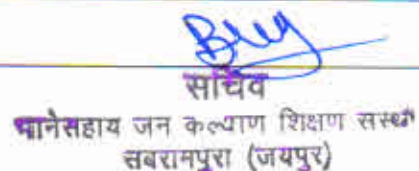 सचिव
थानेसहाय जन कल्याण शिक्षण संस्था
सबरामपुरा (जयपुर)